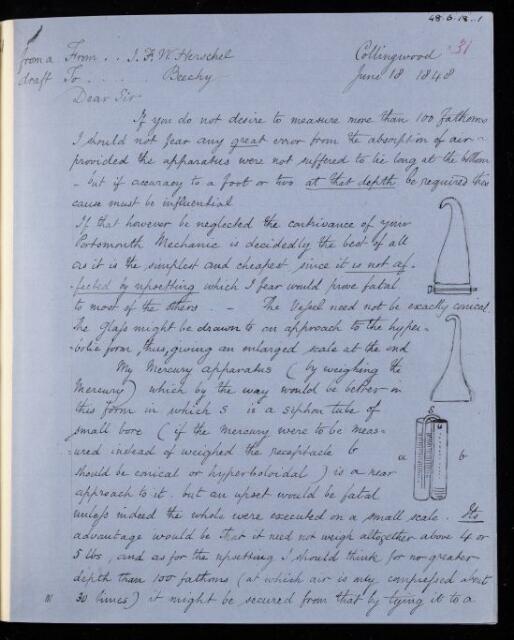 48.6.18..1
31
from a From . . J. F. W. Herschel Collingwood
draft To . . . . . Beechy June 18 1848
Dear Sir
If you do not desire to measure more than 100 fathoms
I should not fear any great error from the absorption of air -
provided the apparatus were not suffered to lie long at the bottom
- but if accuracy to a foot or two at that depth be required this
cause must be influential
If that however be neglected the contrivance of your
Portsmouth Mechanic is decidedly the best of all
as it is the simplest and cheapest since it is not af-
-fected by upsetting which I fear would prove fatal
to most of the others . . - The Vessel need not be exactly conical
The Glass might be drawn to an approach to the hyper-
-bolic form, thus, giving an enlarged scale at the end
My Mercury apparatus (by weighing the
Mercury) which by the way would be better in
this form in which S is a syphon tube of
small bore (if the Mercury were to be meas-
-ured instead of weighed the receptacle b
should be conical or hyperboloidal) is a near
approach to it. but an upset would be fatal
unless indeed the whole were executed on a small scale. Its
advantage would be that it need not weigh altogether above 4 or
5 lbs, and as for the upsetting I should think for no greater
depth than 100 fathoms (at which air is only compressed about
30 times) it might be secured from that by tying it to a
S
a b